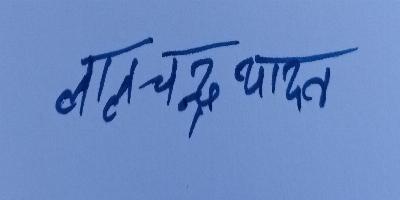 लालचन्द्र यादव